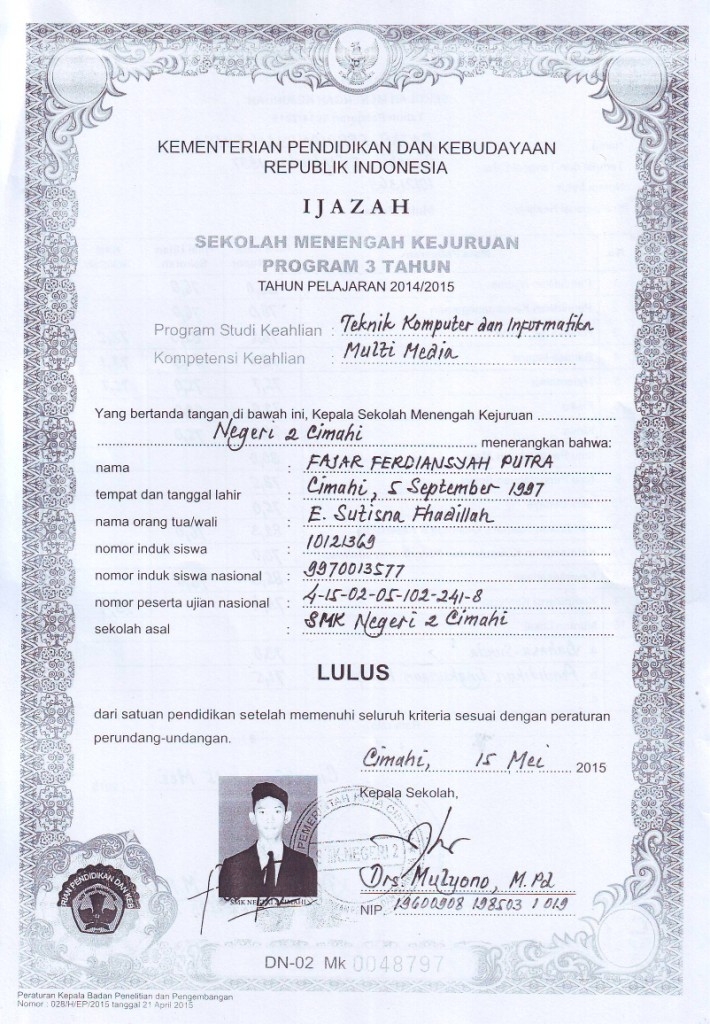 KEMENTERIAN PENDIDIKAN DAN KEBUDAYAAN
REPUBLIK INDONESIA
IJAZAH
SEKOLAH MENENGAH KEJURUAN
PROGRAM 3 TAHUN
TAHUN PELAJARAN 2014/2015
Program Studi Keahlian : Teknik Komputer dan Informatika
Kompetensi Keahlian : Multi Media
Yang bertanda tangan di bawah ini, Kepala Sekolah Menengah Kejuruan
Negeri 2 Cimahi menerangkan bahwa:
nama : FAJAR FERDIANSYAH PUTRA
tempat dan tanggal lahir : Cimahi, 5 September 1997
nama orang tua/wali : E. Sutisna Fhadillah
nomor induk siswa : 10121369
nomor induk siswa nasional : 9970013577
nomor peserta ujian nasional : 4-15-02-05-102-241-8
sekolah asal : SMK Negeri 2 Cimahi
LULUS
dari satuan pendidikan setelah memenuhi seluruh kriteria sesuai dengan peraturan
perundang-undangan.
Cimahi, 15 Mei 2015
Kepala Sekolah,
PEMERINTAH KOTA
SMK NEGERI 2
Drs. Mulyono, M.Pd
NIP. 19600908 198503 1 019
SMK NEGERI 2 CIMAHI
RIAN PENDIDIKAN DAN KEB
DN-02 Mk 0048797
Peraturan Kepala Badan Penelitian dan Pengembangan
Nomor : 028/H/EP/2015 tanggal 21 April 2015